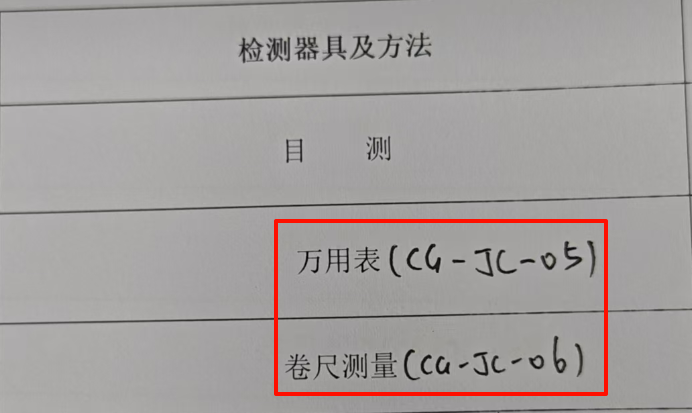 检测器具及方法
目 测
万用表(CG-JC-05)
卷尺测量(CG-JC-06)